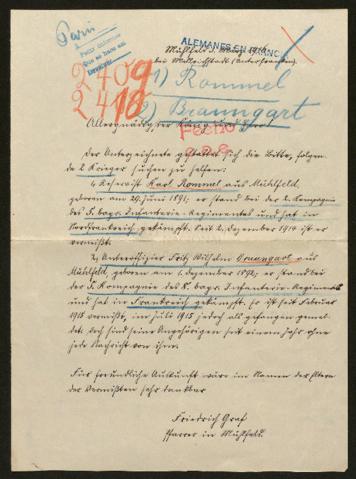 Paris
ALEMANES EN FRANCIA
Mühlfeld, März 1916
bei Mellrichstadt (Unterfranken).
2409 1) Rommel
2418 2) Braungart
Allergnädigster König und Herr!
Fecho
Der Unterzeichnete gestattet sich die Bitte, folgen-
de 2 Krieger suchen zu helfen:
1, Reservist Karl Rommel aus Mühlfeld,
geboren am 29. Juni 1891; er stand bei der 2. Kompagnie
des 5. bayr. Infanterie-Regimentes und hat in
Nordfrankreich gekämpft. Seit 2. Dezember 1914 ist er
vermißt.
2, Unteroffizier Fritz Wilhelm Braungart aus
Mühlfeld, geboren am 1. Dezember 1892; er stand bei
der 3. Kompagnie des bayr. Infanterie-Regiments
und hat in Frankreich gekämpft. Er ist seit Februar
1915 vermißt, im Juli 1915 jedoch als gefangen gemel-
det. Doch sind seine Angehörigen seit einem Jahr ohne
jede Nachricht von ihm.
Für freundliche Auskunft wäre im Namen der Eltern
der Vermißten sehr dankbar
Friedrich Graf
Pfarrer in Mühlfeld.